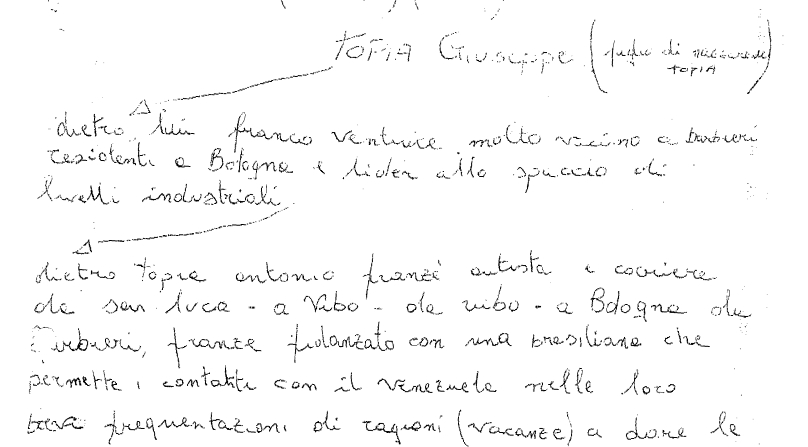 TOPIA Giuseppe (figlio di nazzareno
TOPIA)
dietro lui franco ventrice molto vicino a barbieri
residenti a Bologna e lider allo spaccio di
livelli industriali
dietro topia antonio franzè autista e corriere
da san luca - a Vibo - da vibo - a Bologna da
Barbieri, franze fidanzato con una brasiliana che
permette i contatti con il venezuela nelle loro
frequentazioni di ragioni (vacanze) a dare le